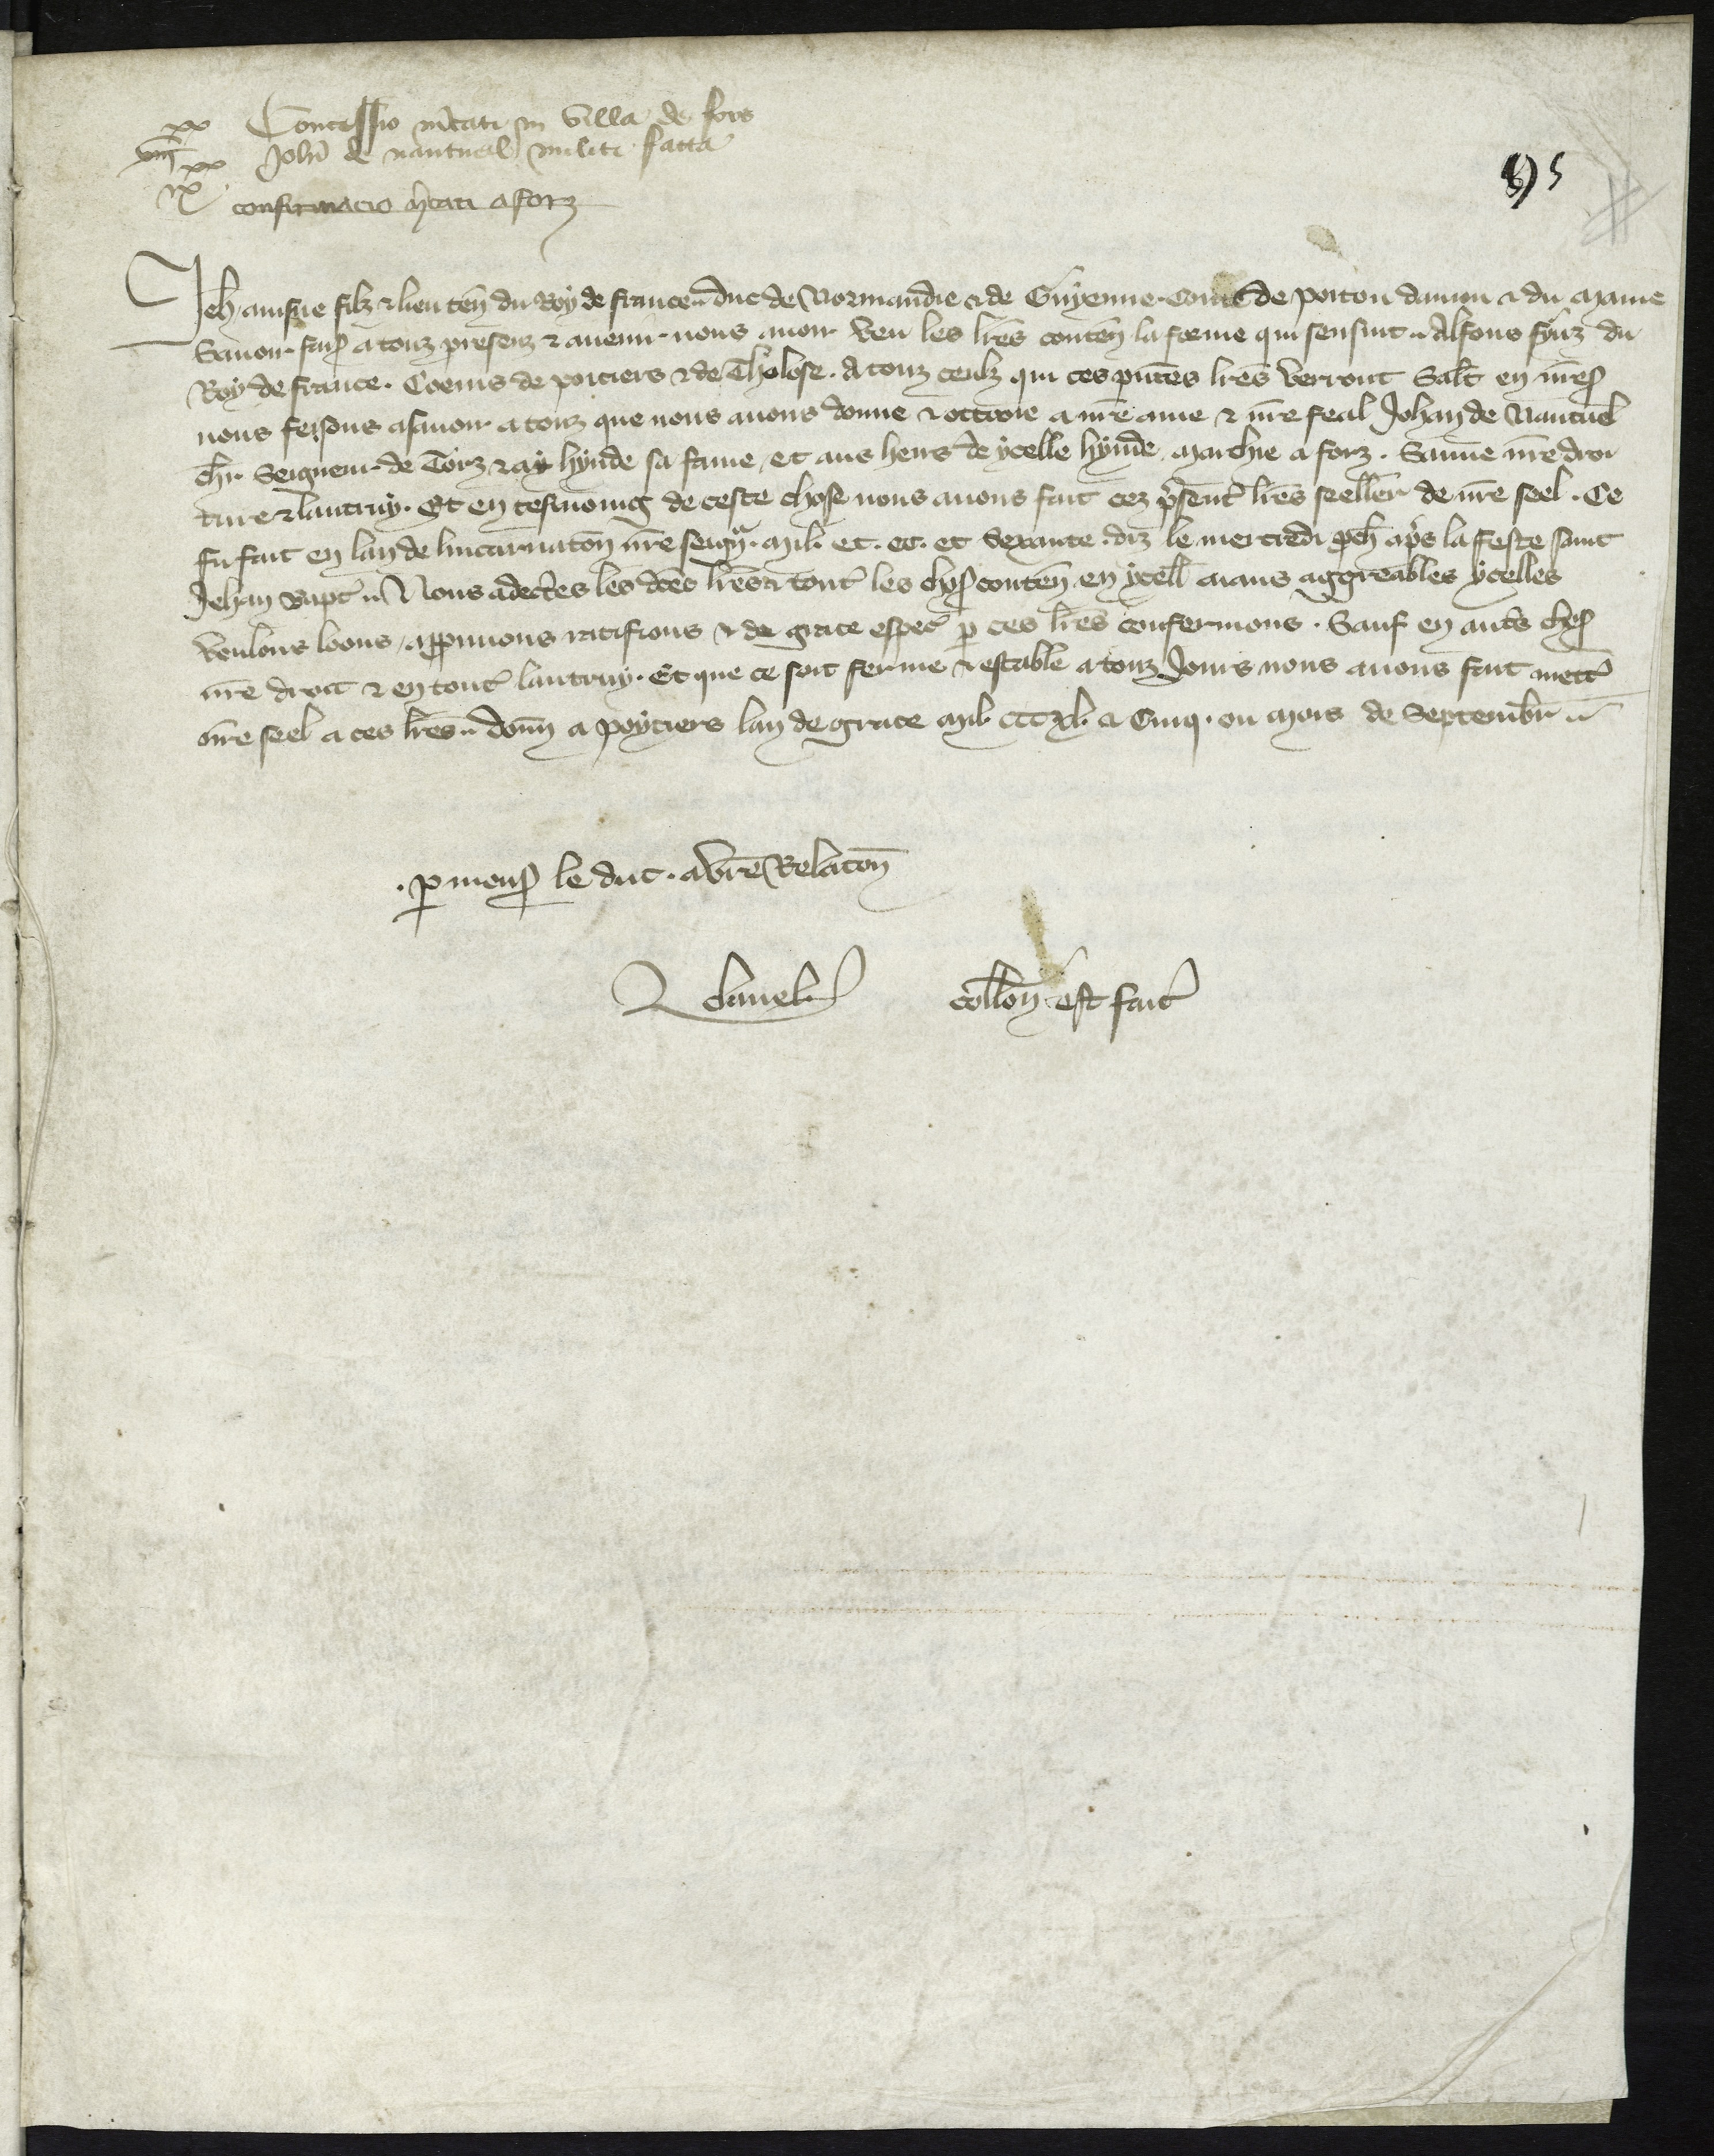 Concessio mercati in villa de fors
Johi de nantueil militi facta
viij xx
ix xx
confirmacio mercati a forz
95
Jeh ainsne filz & lieuten du Roy de france duc de Normandie & de Guyenne Conte de poitou danjou & du Maine
Savoir fais a touz presenz & avenir nous avoir veu les lres conten la forme qui sensuit Alfons fyuz du
Roy de france . Coens de poitiers & de Tholose . A touz ceulz qui ces pntes lres verront Salt en nre S
nous feisons asavoir a touz que nous avons donne & ottroie a nre ame & nre feal Johan de Nantuel
chr Seigneur de Torz & a hynde sa fame, et aus heirs de ycelle hynde marchie a forz . Sauve nre droi
ture & lautruy . Et en tesmoing de ceste chose nous avons fait cez psent lres seeller de nre seel . Ce
fu fait en lan de lincarnaton nre seign . Mil . cc . et sexante diz le mercredi pch aps la feste saint
Jehan Bapt Nous adectes les dces lres & tout les choses conten en ycell aians aggreables ycelles
voulons loons, appruvons ratifions & de grace espec p ces lres confermons . Sauf en auts choses
nre droit & en tout lautruy . Et que ce soit ferme & estable a touz Jours nous avons fait mett
nre seel a ces lres donn a Poytiers lan de grace mil . CCC xl . & Cinq . ou mois de Septembr
. p mons le duc . a vre Relaton
collon est fait